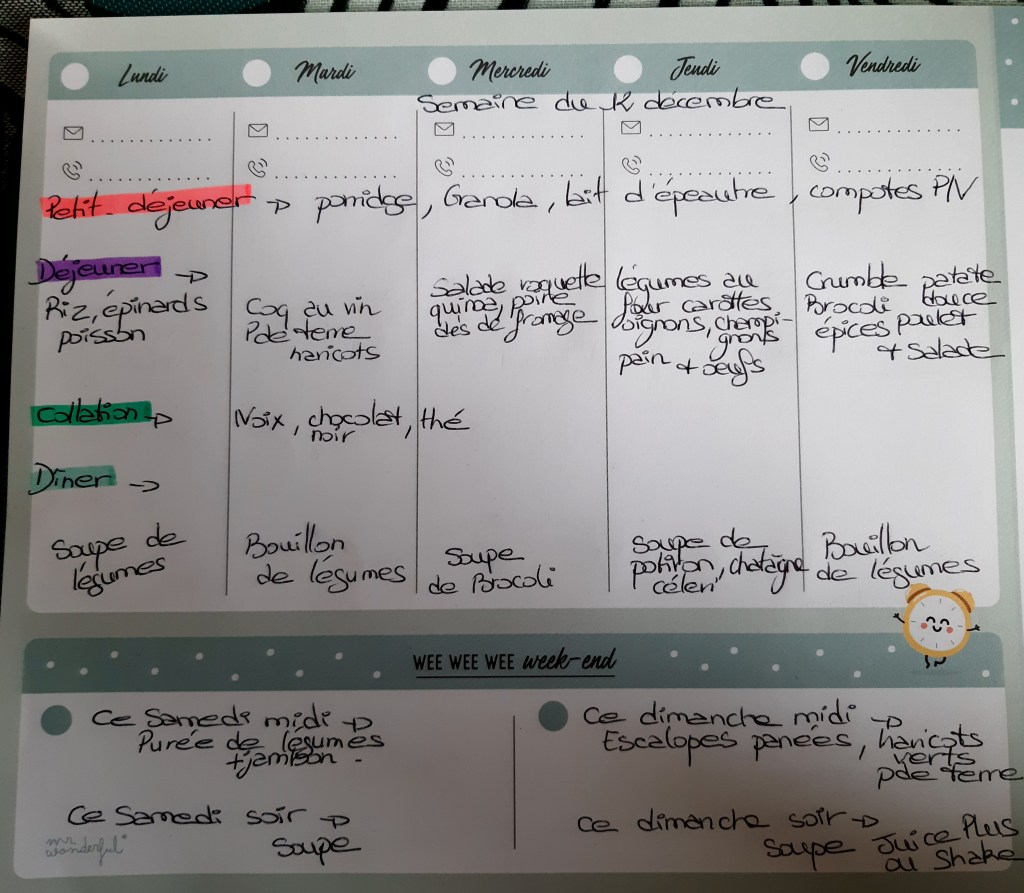 Lundi Mardi Mercredi Jeudi Vendredi
Semaine du 12 décembre
Petit-déjeuner → porridge, Granola, lait d'épeautre, compotes P/V
Déjeuner →
Riz, épinards
poisson
Coq au vin
Pde terre
haricots
Salade roquette
quinoa, poire
dés de fromage
légumes au
four carottes
oignons, champi-
gnons
pain + oeufs
Crumble patate
Brocoli douce
épices poulet
+ Salade
Collation →
Noix, chocolat, thé
noir
Dîner →
Soupe de
légumes
Bouillon
de légumes
Soupe
de Brocoli
Soupe de
potiron, chataîgne
céleri
Bouillon
de légumes
WEE WEE WEE week-end
Ce Samedi midi →
Purée de légumes
+ jambon.
Ce Samedi soir →
Soupe
Ce dimanche midi →
Escalopes panées, haricots
verts
pde terre
Ce dimanche soir →
Soupe Juice Plus
ou Shake
mr
wonderful*